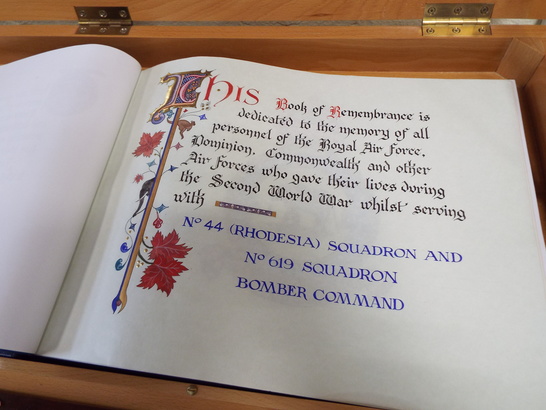 This Book of Remembrance is
dedicated to the memory of all
personnel of the Royal Air Force,
Dominion, Commonwealth and other
Air Forces who gave their lives during
the Second World War whilst serving
with
Nº 44 (RHODESIA) SQUADRON AND
Nº 619 SQUADRON
BOMBER COMMAND